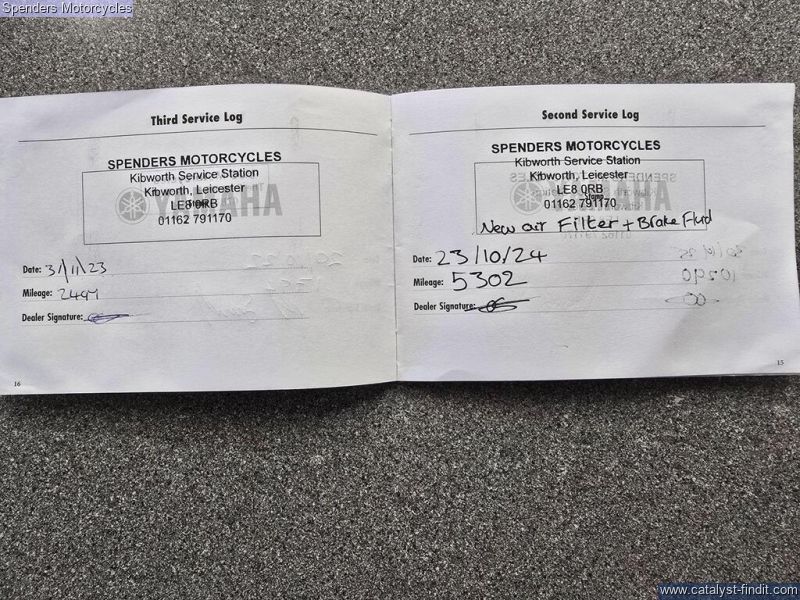 Spenders Motorcycles
Third Service Log
SPENDERS MOTORCYCLES
Kibworth Service Station
Kibworth, Leicester
LE8 0RB
01162 791170
YAMAHA
Date: 31/11/23
Mileage:
Dealer Signature:
16
Second Service Log
SPENDERS MOTORCYCLES
Kibworth Service Station
Kibworth, Leicester
LE8 0RB
Stamp
01162 791170
New air Filter + Brake Fluid
Date: 23/10/24
Mileage: 5302
Dealer Signature:
15
www.catalyst-findit.com